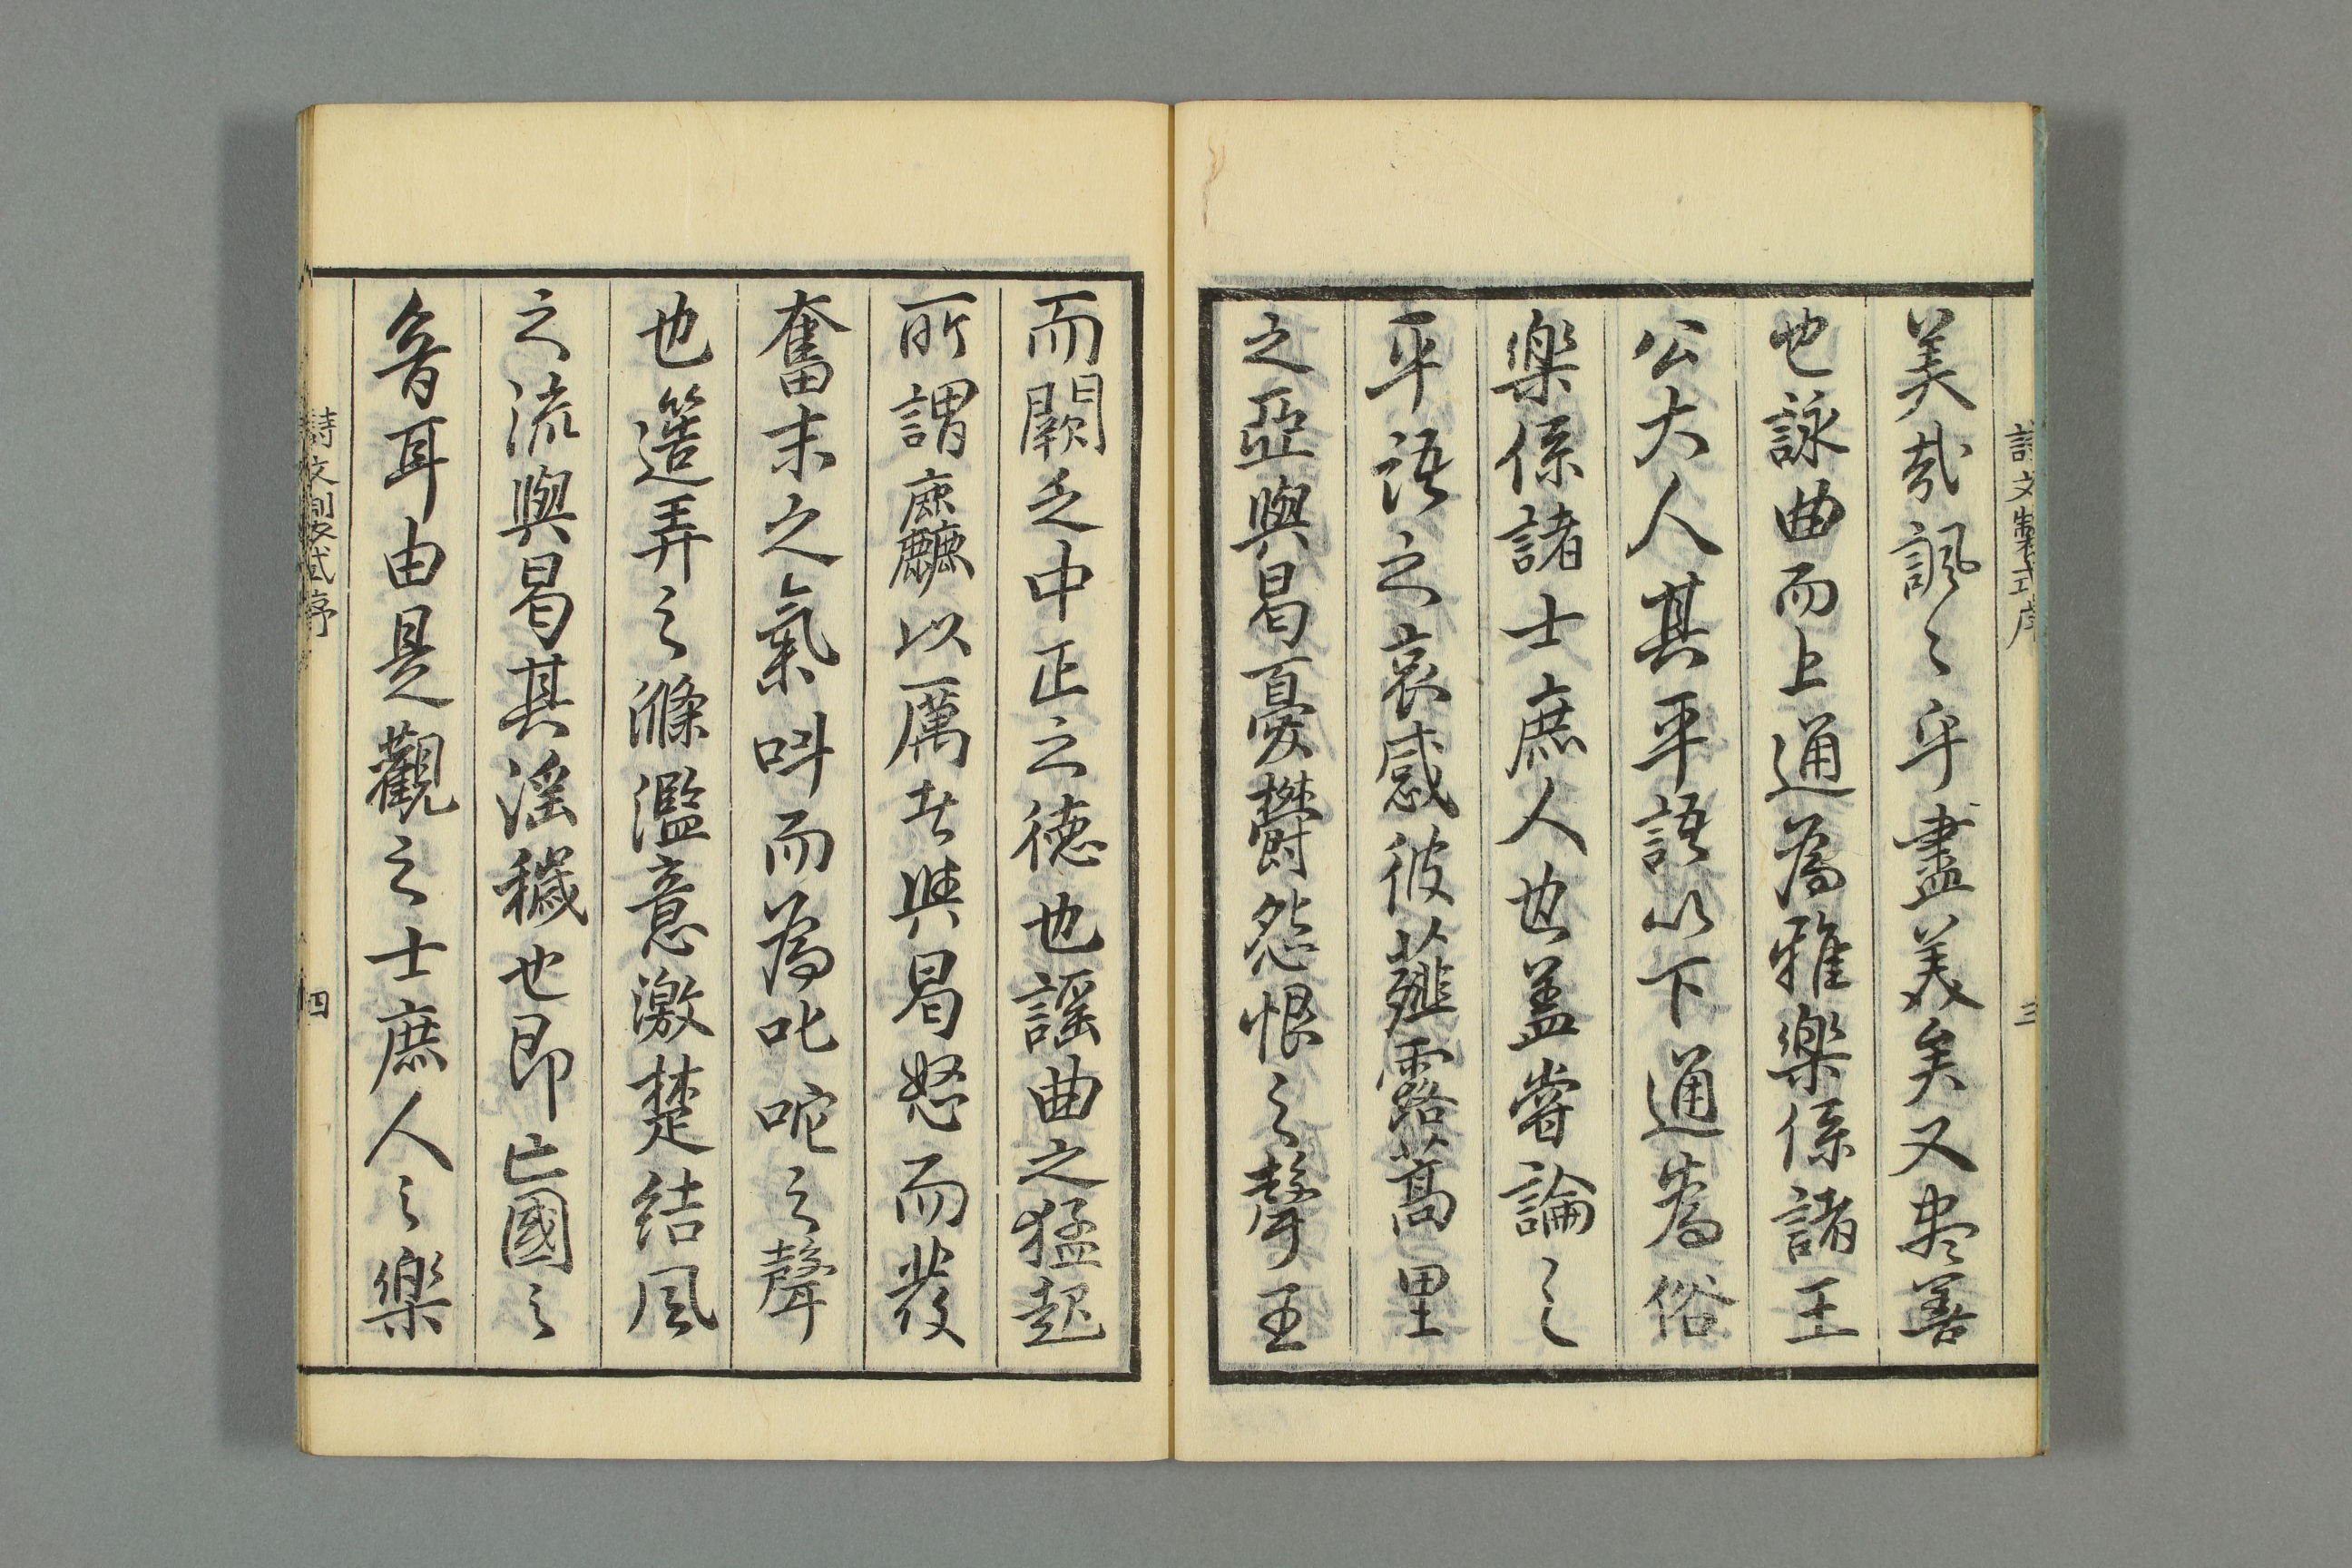 詩文製式序 三
美哉諷〻乎盡美矣又尽善
也詠曲而上通為雅樂係諸王
公大人其平語以下通為俗
樂係諸士庶人也盖嘗論之
平語之哀感彼薤露蒿里
之亞與曷憂欝怨恨之聲王
而闕乏中正之德也謡曲之猛起
所謂麤以厲者與曷怒而發
奮末之氣叫而為叱咤之聲
也簉弄之滌濫意激楚結風
之流與曷其淫穢也即亡國之
音耳由是觀之士庶人之樂
詩文製式序 四